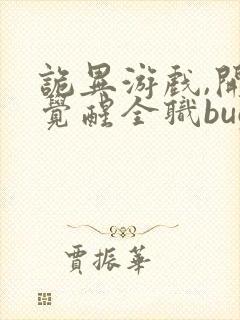 詭異游戲,開
覺醒全職bu
賈振華